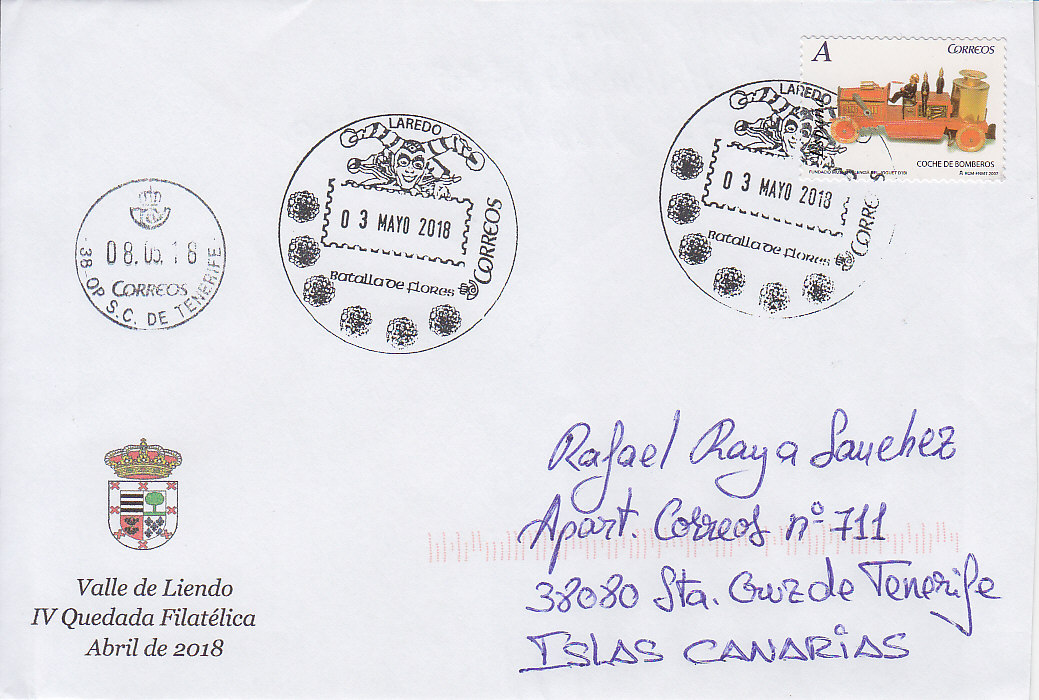 A CORREOS
España
COCHE DE BOMBEROS
LAREDO
03 MAYO 2018
Batalla de flores
CORREOS
LAREDO
03 MAYO 2018
Batalla de flores
CORREOS
08.05.18
CORREOS
38-OP S.C. DE TENERIFE
Rafael Raya Sanchez
Apart. Correos nº 711
38080 Sta. Cruz de Tenerife
ISLAS CANARIAS
Valle de Liendo
IV Quedada Filatélica
Abril de 2018